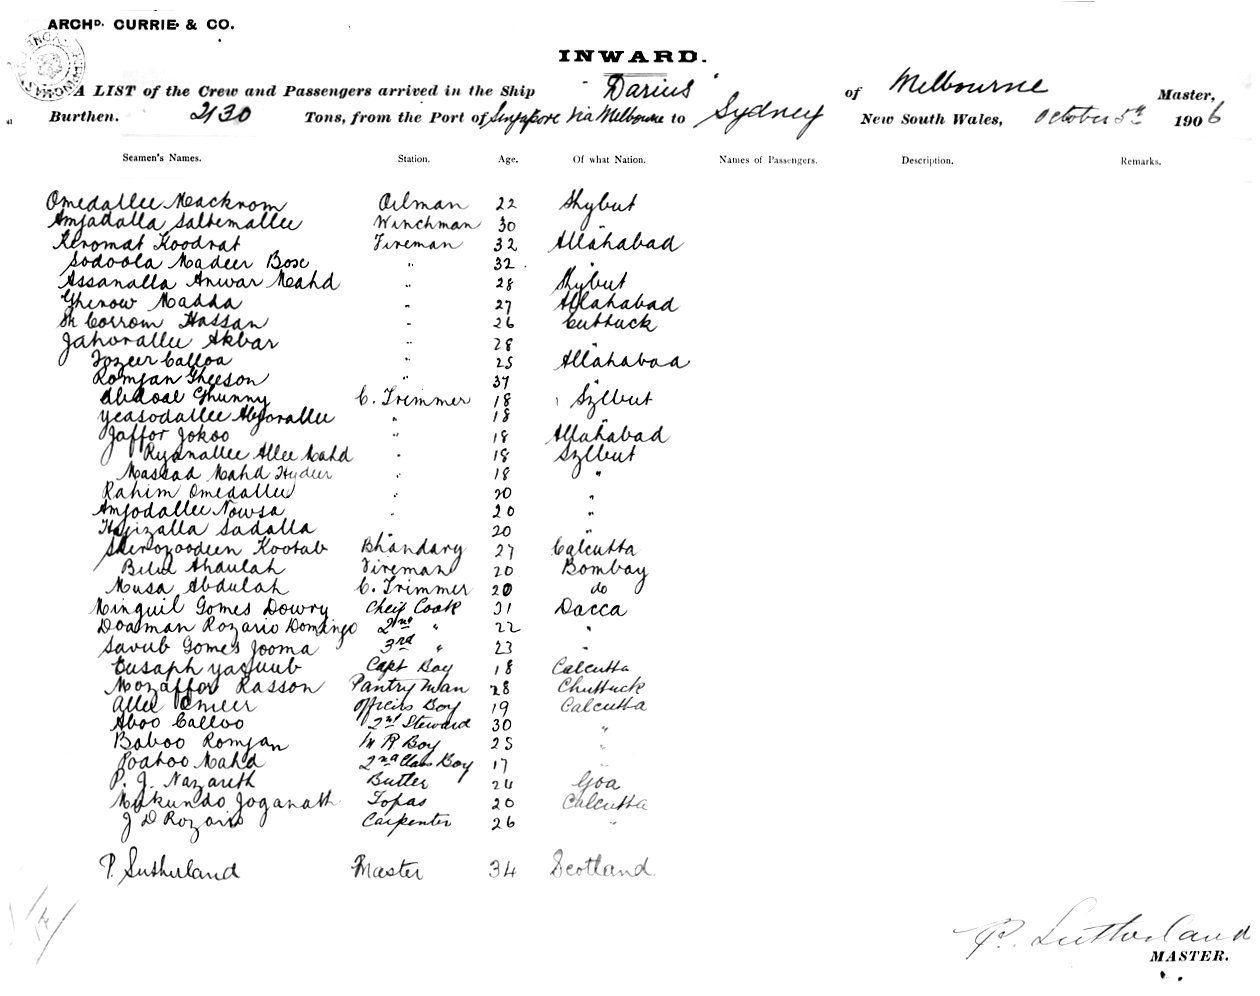 ARCHD. CURRIE & CO.
INWARD.
A LIST of the Crew and Passengers arrived in the Ship "Darius" of Melbourne Master,
Burthen. 2130 Tons, from the Port of Singapore via Melbourne to Sydney New South Wales, October 5th 1906
Seamen's Names. Station. Age. Of what Nation. Names of Passengers. Description. Remarks.
Omedallee Macknom Oilman 22 Shybut
Amjadalla Saltemallee Winchman 30 "
Keromat Koodrat Fireman 32 Allahabad
Sodoola Madeer Bose " 32 "
Assanalla Anwar Mahd " 28 Shybut
Ghenow Madda " 27 Allahabad
Sk Corrom Hassan " 26 Cuttuck
Jahorallee Akbar " 28 "
Fozeer Calloa " 25 Allahabad
Romjan Gheeson " 37 "
Abdoal Ghunny C. Trimmer 18 Sylbut
Yeasodallee " 18 "
Jaffor Jokoo " 18 Allahabad
Ryanallee Allee Mahd " 18 Sylbut
Massad Mahd Hydeer " 18 "
Rahim Omedallee " 20 "
Amjodallee Nowsa " 20 "
Hafizalla Sadalla " 20 "
Serozoodeen Kootab Bhandary 27 Calcutta
Bilal Ahdulah Fireman 20 Bombay
Musa Abdulah C. Trimmer 20 do
Minguil Gomes Dowry Cheif Cook 31 Dacca
Doaman Rozario Domingo 2nd " 22 "
Savub Gomes Jooma 3rd " 23 "
Eusaph Yacuub Capt Boy 18 Calcutta
Mozaffor Rasson Pantry Man 28 Chuttuck
Allee Emeer Officers Boy 19 Calcutta
Aboo Calloo 2nd Steward 30 "
Baboo Romjan M R Boy 25 "
Poahoo Mahd 2nd Class Boy 17 "
P. J. Nazareth Butler 24 Goa
Mukundo Joganath Topas 20 Calcutta
J D Rozario Carpenter 26 "
P. Sutherland Master 34 Scotland
P. Sutherland
MASTER.